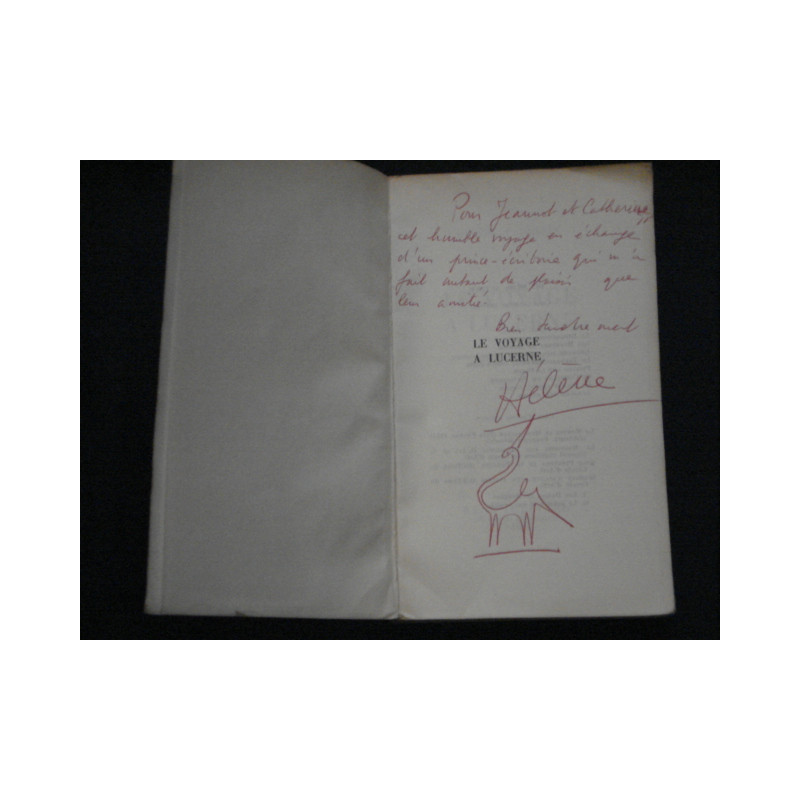 Pour Jeannot et Catherine,
cet humble voyage en échange
d'un prince-écritoire qui m'a
fait autant de plaisir que
leur amitié.
Bien
LE VOYAGE
A LUCERNE
Hélène